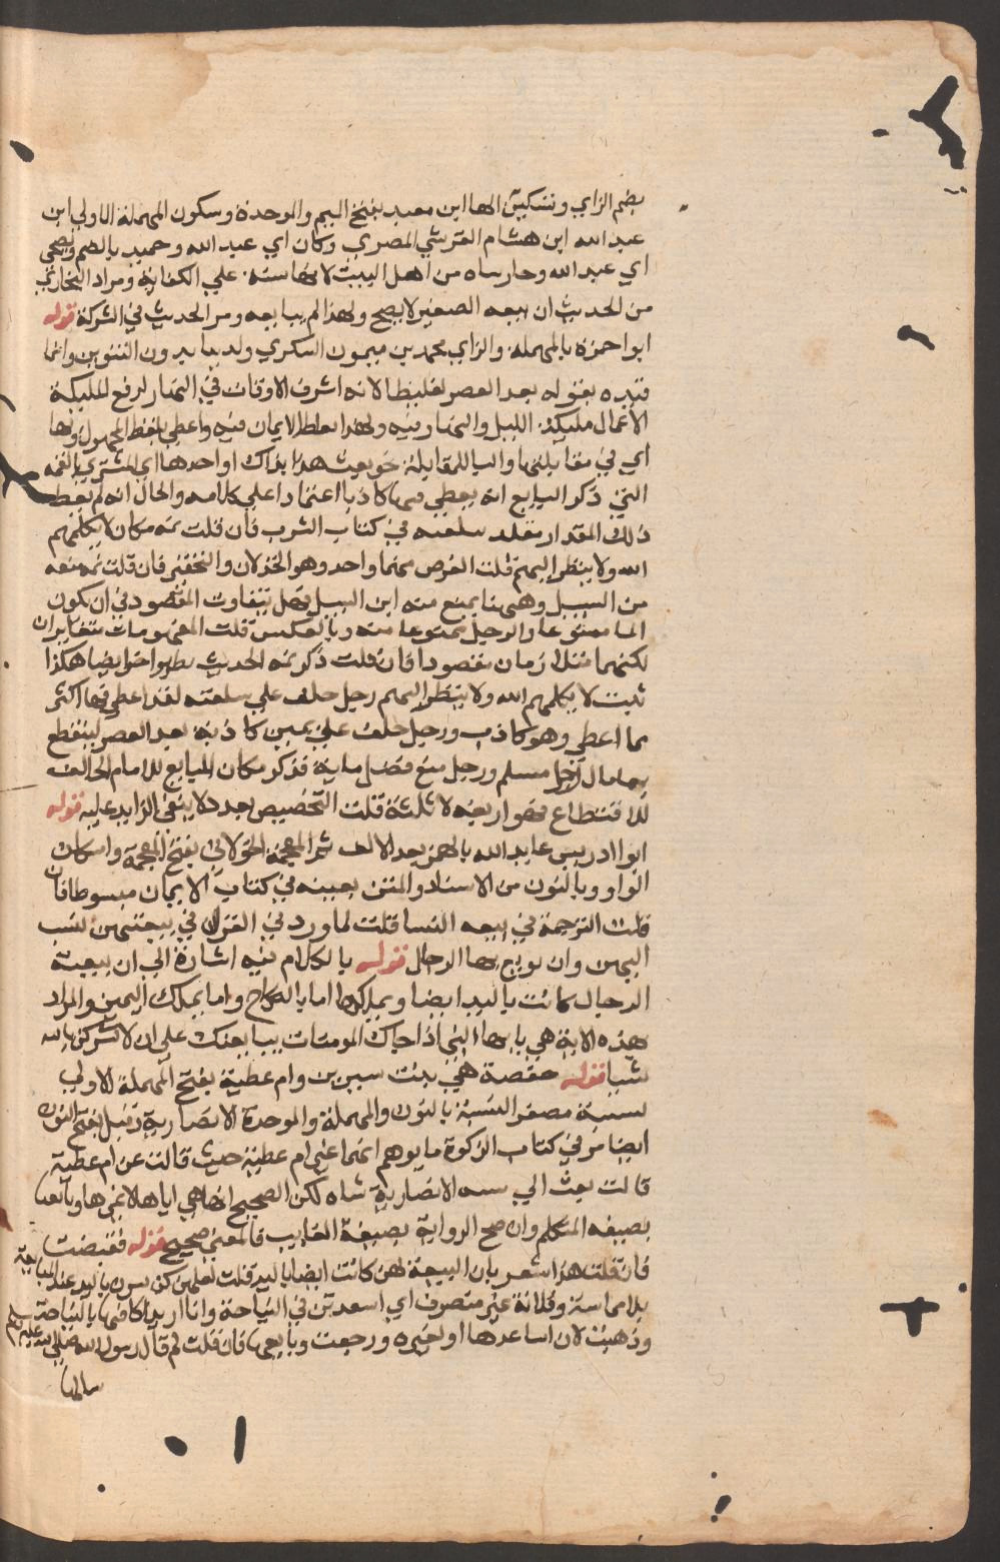 بضم الزاي وتسكين الها ابن معبد بفتح الميم والموحدة وسكون المهملة الاولى ابن
عبد الله ابن هشام القرشي المصري وكان اي عبد الله وحميد بالضم ويضحى
اي عبد الله وحار ساه من اهل البيت لا نها سنة علي الكفاية ومراد البخاري
من الحديث ان بيعه الصغير لا يصح ولهذا لم يبايعه ومر الحديث في الشركة قوله
ابو احمزة بالمهملة والزاي محمد بن ميمون السكري ولدنيا بدون التنوين وانما
قيده بقوله بعد العصر تغليظا لانه اشرف الاوقات في النهار لرفع المليكة
الاعمال مليكة الليل والنهار فيه ولهذا تغلظ الايمان فيه واعطي بلفظ المجهول وبها
اي في مقابلتها والبا للمقابلة نحو بعت هذا بذاك او احدها اي المشتري بالقيمة
التي ذكر البايع انه يعطي فيها كاذبا اعتمادا علي كلامه والحال انه لم يعط
ذلك المقدار سلعته في كتاب الشرب فان قلت ثمه مكان لا يكلمهم
الله ولا ينظر اليهم قلت الغرض منهما واحد وهو الخذلان والتحقير فان قلت ثمه منعه
من السبيل وههنا يمنع منه ابن السبيل فهل يتفاوت المقصود في ان يكون
الما ممنوعا والرجل ممنوعا منه وبالعكس قلت المفهومات متغايران
لكنهما متلازمان مقصودا فان قلت ذكر ثمه الحديث بطريق اخر ايضا هكذا
ثلثة لا يكلمهم الله ولا ينظر اليهم رجل حلف علي سلعته لقد اعطي بها اكثر
مما اعطي وهو كاذب ورجل حلف علي يمين كاذبة بعد العصر ليقتطع
بها مال رجل مسلم ورجل منع فضل مايه فذكر مكان المبايع للامام الحالف
للاقتطاع فهو اربعة لا ثلثة قلت التخصيص بعدد لا ينفي الزايد عليه قوله
ابوا ادريس عايد الله بالهمز بعد الالف ثم المعجمة الخولاني بفتح المعجمة واسكان
الواو وبالنون من الاسناد والمتن بعينه في كتاب الايمان مبسوطا فان
قلت الترجمة في بيعه النسا قلت لما ورد في القران في بيعتهن نسب
اليهن وان بويع بها الرجال قوله بالكلام فيه اشارة الي ان بيعة
الرجال كانت باليد ايضا ويملكها اما بالنكاح واما بملك اليمين والمراد
بهذه الاية هي يا ايها النبي اذا جاك المومنات يبايعنك علي ان لا يشركن بالله
شيا قوله حفصة هي بنت سيرين وام عطية بفتح المهملة الاولي
نسيبة مصغر النسبة بالنون والمهملة والموحدة الانصارية وقيل بفتح النون
ايضا مر في كتاب الزكوة ما يوهم انها غير ام عطية حيث قالت عن ام عطية
قالت بعث الي نسيبه الانصارية شاه لكن الصحيح انها هي اياها لا غيرها
بصيغه المتكلم وان صح الرواية بصيغة الغايب فالمعني صحيح قوله فقبضت
فان قلت هذا مشعر بان البيعة لهن كانت ايضا باليد قلت لعلهن كن يشرن باليد عند المبايعة
بلا مماسة وفلانة غير منصرف اي اسعدتني في النياحة وانا اريد اكافيها بالنياحة
وذهبت لان اساعدها او لغيره ورجعت وبايعها فان قلت لم قال رسول الله صلي الله عليه وسلم